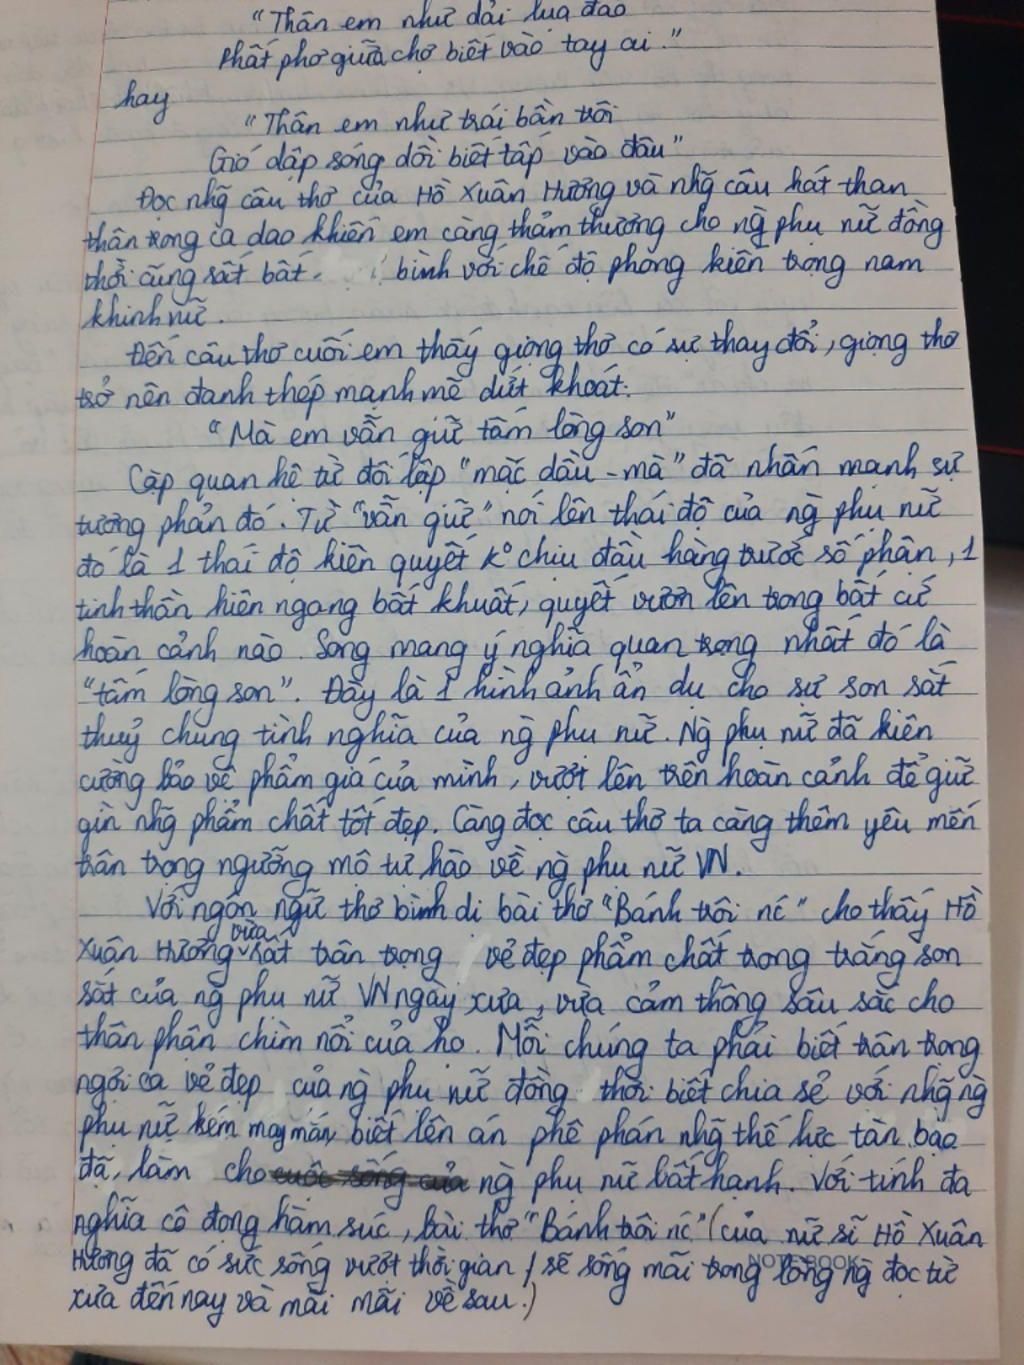 "Thân em như dải lụa đào
Phất phơ giữa chợ biết vào tay ai."
hay
"Thân em như trái bần trôi
Gió dập sóng dồi biết tấp vào đâu"
Đọc nhg̃ câu thơ của Hồ Xuân Hương và nhg̃ câu hát than
thân trong ca dao khiến em càng thảm thương cho ng̀ phụ nữ đồng
thời cũng sất bất bình với chế độ phong kiến trọng nam
khinh nữ.
Đến câu thơ cuối em thấy giọng thơ có sự thay đổi, giọng thơ
trở nên đanh thép mạnh mẽ dứt khoát:
"Mà em vẫn giữ tấm lòng son"
Cặp quan hệ từ đối lập "mặc dầu - mà" đã nhấn mạnh sự
tương phản đó. Từ "vẫn giữ" nói lên thái độ của ng̀ phụ nữ
đó là 1 thái độ kiên quyết k° chịu đầu hàng trước số phận, 1
tinh thần hiên ngang bất khuất, quyết vươn lên trong bất cứ
hoàn cảnh nào. Song mang ý nghĩa quan trọng nhất đó là
"tấm lòng son". Đây là 1 hình ảnh ẩn dụ cho sự son sắt
thuỷ chung tình nghĩa của ng̀ phụ nữ. Ng̀ phụ nữ đã kiên
cường bảo vệ phẩm giá của mình, vượt lên trên hoàn cảnh để giữ
gìn nhg̃ phẩm chất tốt đẹp. Càng đọc câu thơ ta càng thêm yêu mến
trân trọng ngưỡng mộ tự hào về ng̀ phụ nữ VN.
Với ngôn ngữ thơ bình dị bài thơ "Bánh trôi nc´" cho thấy Hồ
Xuân Hương vừa rất trân trọng vẻ đẹp phẩm chất trong trắng son
sắt của ng̀ phụ nữ VN ngày xưa, vừa cảm thông sâu sắc cho
thân phận chìm nổi của họ. Mỗi chúng ta phải biết trân trọng
ngợi ca vẻ đẹp của ng̀ phụ nữ đồng thời biết chia sẻ với nhg̃ ng̀
phụ nữ kém may mắn, biết lên án phê phán nhg̃ thế lực tàn bạo
đã, làm cho cuộc sống của ng̀ phụ nữ bất hạnh. Với tính đa
nghĩa cô đọng hàm súc, bài thơ "Bánh trôi nc´" (của nữ sĩ Hồ Xuân
Hương đã có sức sống vượt thời gian / sẽ sống mãi trong lòng ng̀ đọc từ
xưa đến nay và mãi mãi về sau.)
NOTEBOOK